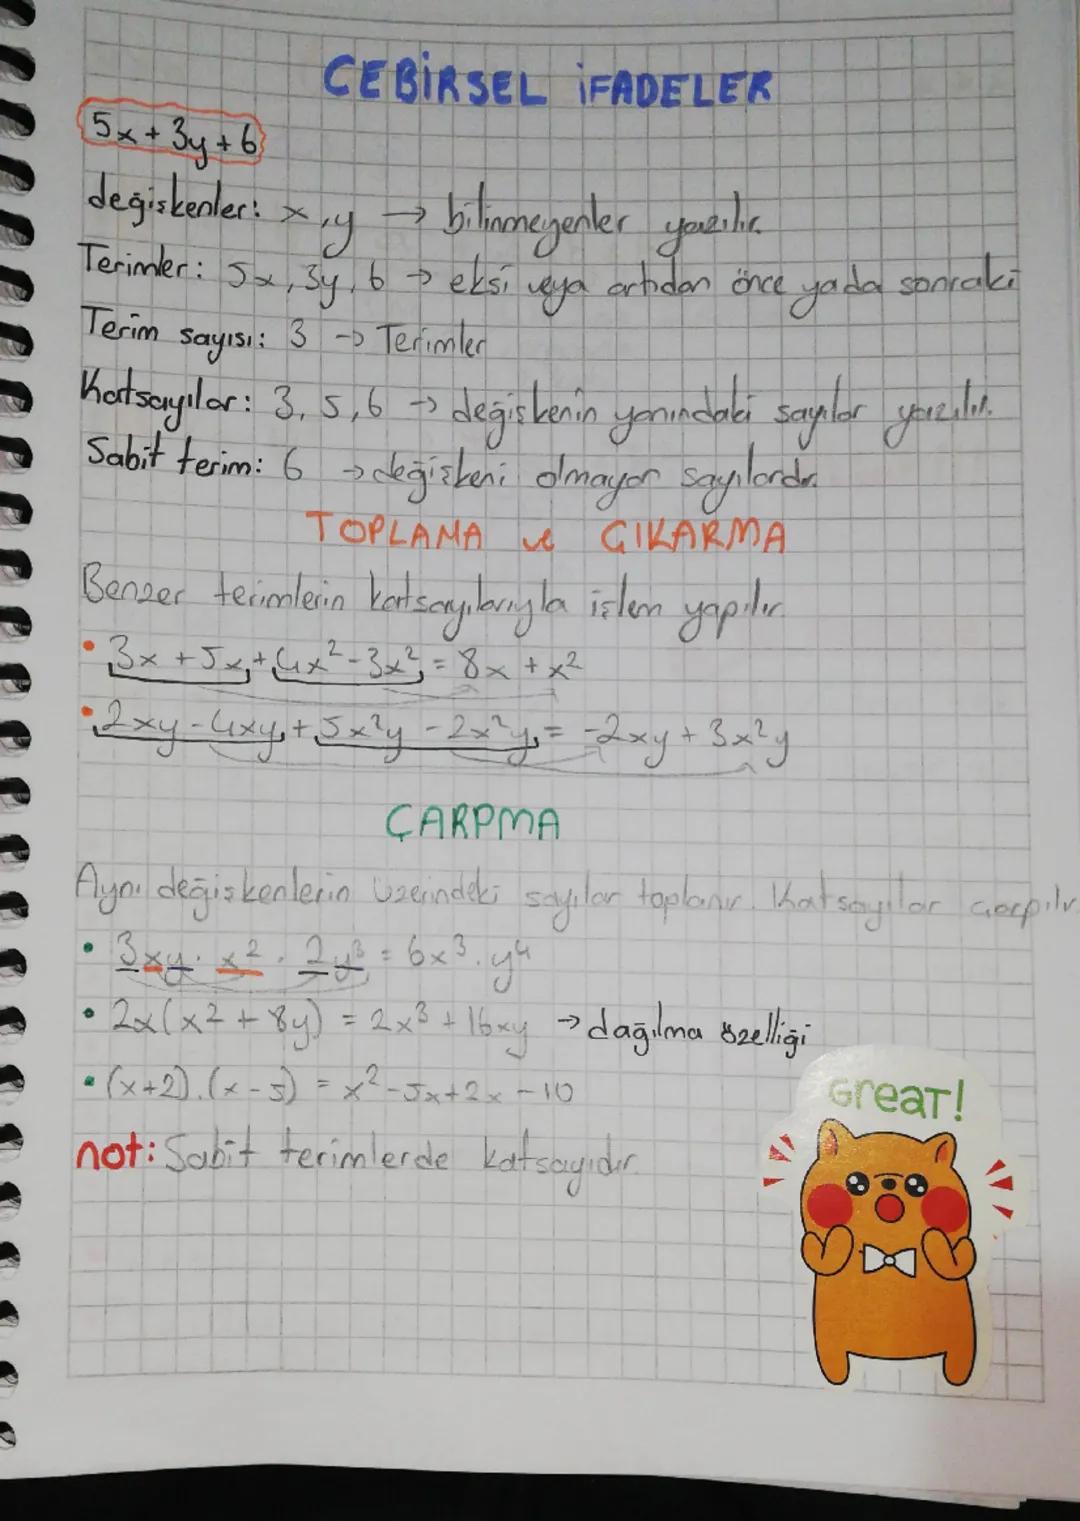 CEBİRSEL İFADELER
5x + 3y + 6
değişkenler: x, y → bilinmeyenler yazılır.
Terimler: 5x, 3y, 6 → eksi veya artıdan önce yada sonraki
Terim sayısı: 3 → Terimler
Katsayılar: 3, 5, 6 → değişkenin yanındaki sayılar yazılır.
Sabit terim: 6 → değişkeni olmayan sayılardır.
TOPLAMA ve ÇIKARMA
Benzer terimlerin katsayılarıyla işlem yapılır.
• 3x + 5x + 4x² - 3x² = 8x + x²
• 2xy - 4xy + 5x²y - 2x²y = -2xy + 3x²y
ÇARPMA
Aynı değişkenlerin üzerindeki sayılar toplanır. Katsayılar çarpılır
• 3xy . x² . 2y³ = 6x³ . y⁴
• 2x(x² + 8y) = 2x³ + 16xy → dağılma özelliği
• (x+2).(x-5) = x² - 5x + 2x - 10
not: Sabit terimlerde katsayıdır.
Great!